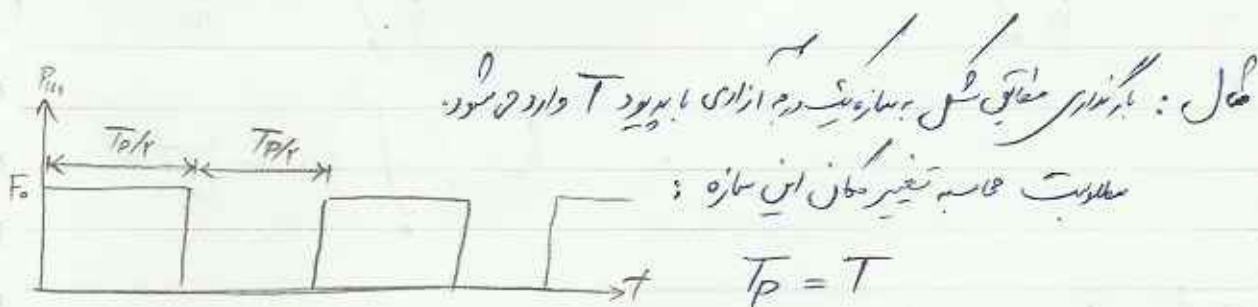 مثال : بارگذاری مطابق شکل به سازه یک درجه آزادی با پریود T وارد می شود.
مطلوبست محاسبه تغییر مکان این سازه :
Tp = T
P(t)
Tp/۲ Tp/۲
F₀
t